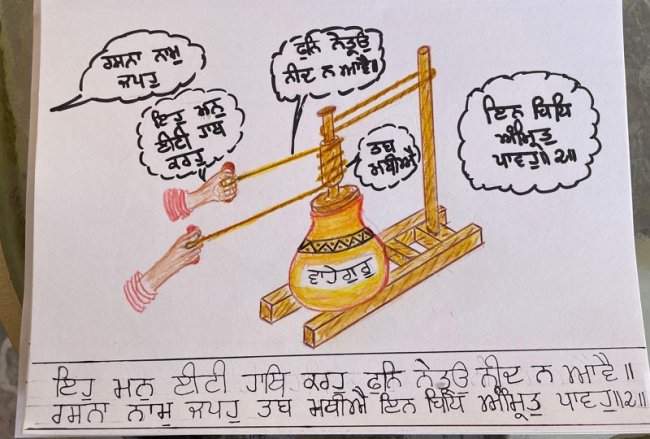 ਰਸਨਾ ਨਾਮੁ
ਜਪਹੁ
ਫੁਨਿ ਨੇਤ੍ਰਉ
ਨੀਦ ਨ ਆਵੈ॥
ਇਹੁ ਮਨੁ
ਈਟੀ ਹਾਥਿ
ਕਰਹੁ
ਤਬ
ਮਥੀਐ
ਇਨ ਬਿਧਿ
ਅੰਮ੍ਰਿਤੁ
ਪਾਵਹੁ॥੨॥
ਵਾਹੇਗੁਰੂ
ਇਹੁ ਮਨੁ ਈਟੀ ਹਾਥਿ ਕਰਹੁ ਫੁਨਿ ਨੇਤ੍ਰਉ ਨੀਦ ਨ ਆਵੈ॥
ਰਸਨਾ ਨਾਮੁ ਜਪਹੁ ਤਬ ਮਥੀਐ ਇਨ ਬਿਧਿ ਅੰਮ੍ਰਿਤੁ ਪਾਵਹੁ॥੨॥